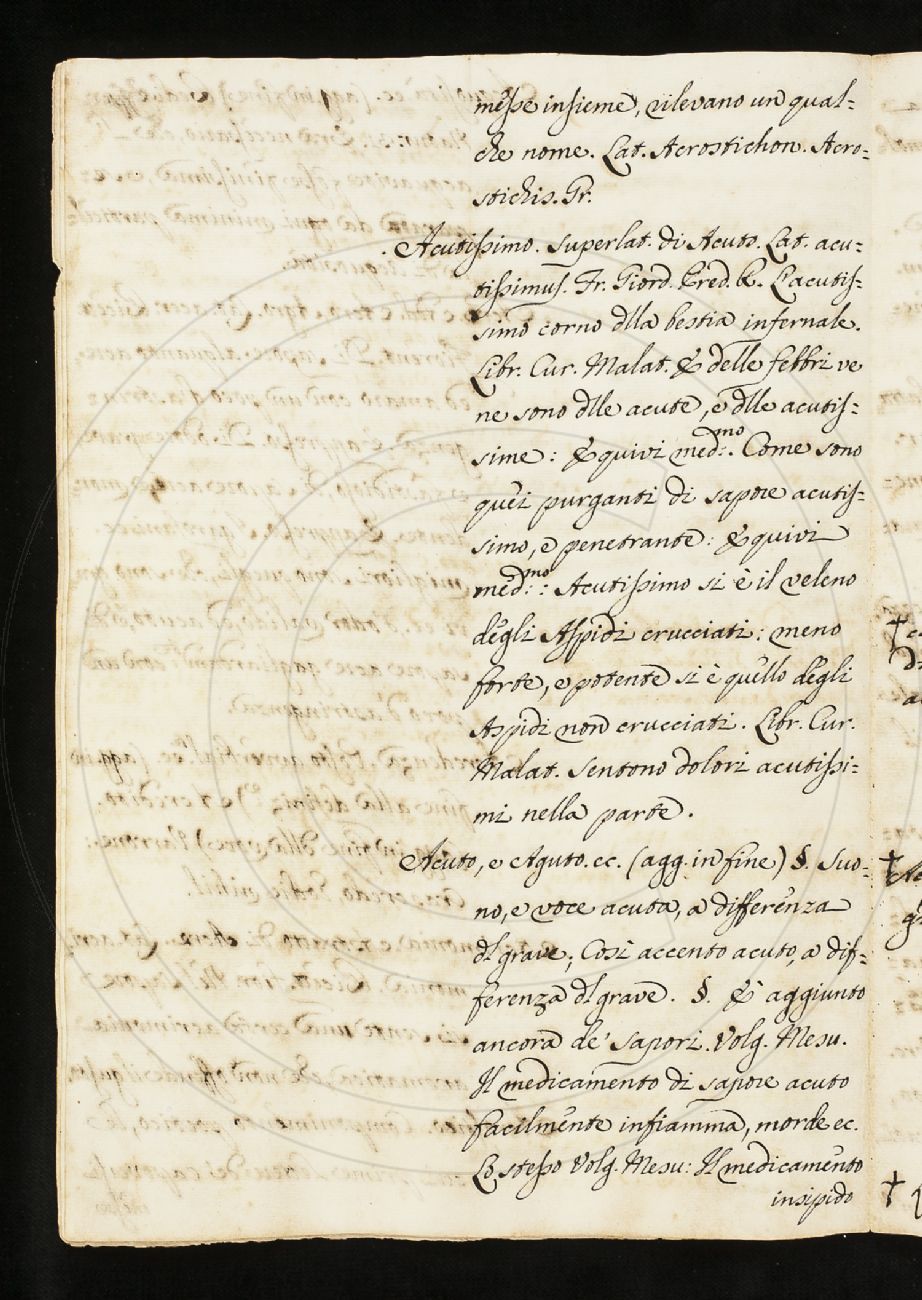 messe insieme, rilevano un qual=
che nome. Lat. Acrostichon. Acro=
stichis. Gr.
Acutissimo. Superlat. di Acuto. Lat. acu=
tissimus. Fr. Giord. Pred. R. L'acutis=
simo corno dlla bestia infernale.
Libr. Cur. Malat. E delle febbri ve
ne sono dlle acute, e dlle acutis=
sime: E quivi med:mo. Come sono
quei purganti di sapore acutis=
simo, e penetrante: E quivi
med:mo: Acutissimo si è il veleno
degli Aspidi crucciati: meno
forte, e potente si è quello degli
Aspidi non crucciati. Libr. Cur.
Malat. Sentono dolori acutissi=
mi nella parte.
Acuto, e Aguto. ec. (agg. in fine) §. Suo=
no, e voce acuta, a differenza
dl grave; Così accento acuto, a dif=
ferenza dl grave. §. E' aggiunto
ancora de' sapori. Volg. Mesu.
Il medicamento di sapore acuto
facilmente infiamma, morde ec.
Lo stesso Volg. Mesu: Il medicamento
insipido